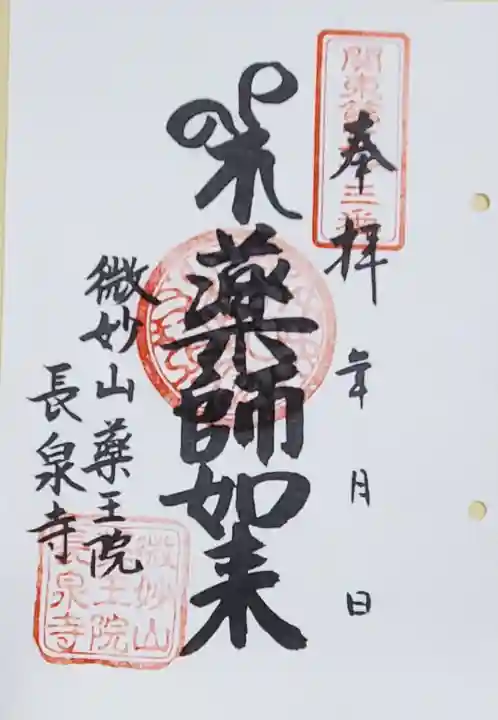 奉拝
年 月 日
薬師如来
微妙山薬王院
長泉寺
微妙山
薬王院
長泉寺